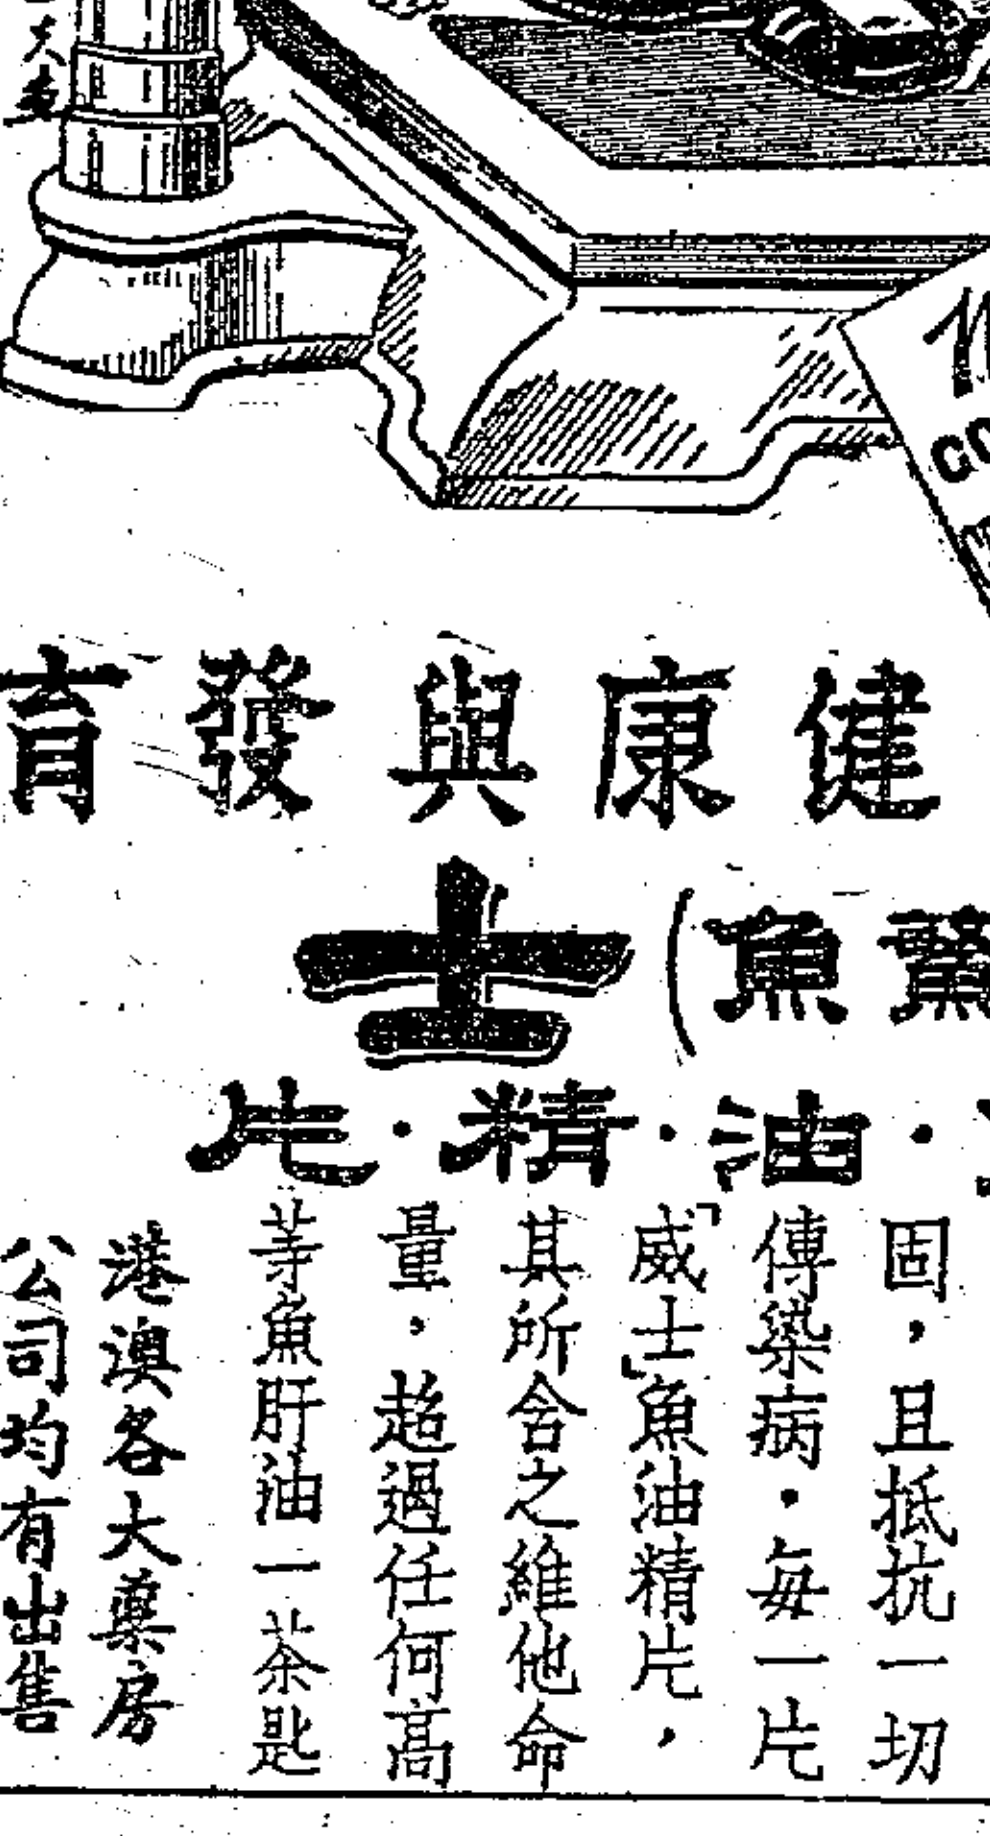 CO
健康與發育
魚(士
油·精·片
固，且抵抗一切
傳染病．每一片
「威士」魚油精片，
其所含之維他命
量，超過任何高
等魚肝油一茶匙
港澳各大藥房
公司均有出售